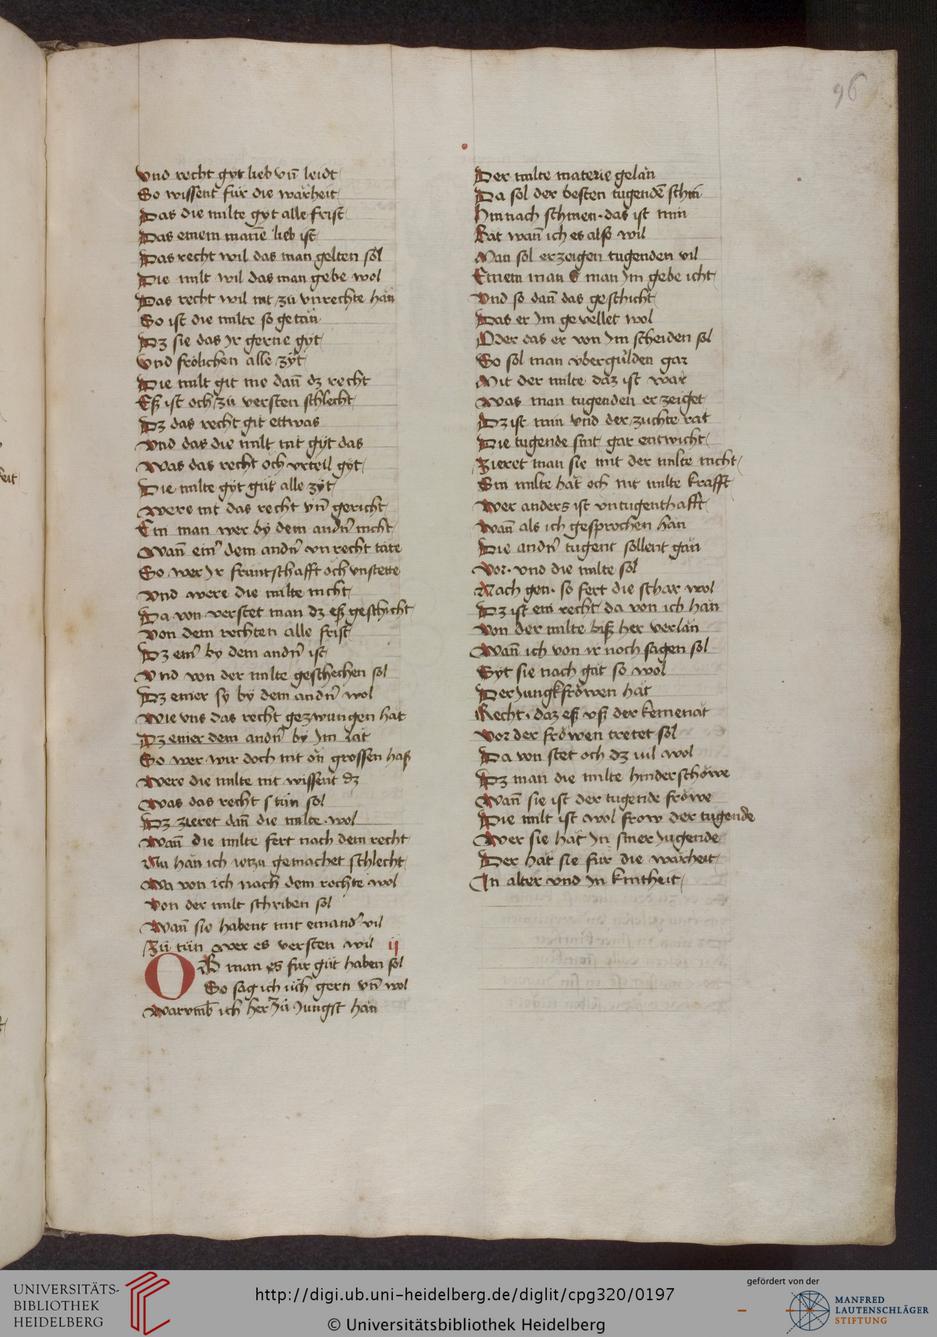 96
Vnd recht gyt lieb vn̄ leidt
So wissent für die warheit
Das die milte gyt alle frist
Das einem manē lieb ist
Das recht wil das man gelten sol
Die milt wil das man gebe wol
Das recht wil nit zü vnrechte han
So ist die milte so getan
Dz sie das Ir gerne gyt
Vnd frölichen alle zyt
Die milt git me dan̄ dz recht
Eß ist och zü versten schlecht
Dz das recht git ettwas
Vnd das die milt nit gyt das
Was das recht och vrteil gyt
Die milte gyt güt alle zyt
Were nit das recht vn̄ gericht
Ein man wer by dem andn̄ nicht
Wan̄ ein dem andn̄ vnrecht täte
So wer Ir früntschafft och vnstette
Vnd were die milte nicht
Da von verstet man dz eß geschicht
Von dem rechten alle frist
Dz ein by dem andn̄ ist
Vnd von der milte geschechen sol
Dz einer sy by dem andn̄ wol
Wie vns das recht gezwungen hat
Dz einer dem andn̄ by Im lat
So wer wir doch nit on grossen haß
Were die milte nit wissent dz
Was das recht tün sol
Dz zieret dan̄ die milte wol
Wan̄ die milte fert nach dem recht
Nu han ich yetzu gemachet schlecht
Wa von ich nach dem rechte wol
Von der milt schriben sol
Wan̄ sie habent mit einand vil
Zü tün wer es versten wil ij
Ob man es für güt haben sol
So sag ich üch gern vn̄ wol
Warumb ich her zü Jungst han
Der milte materie gelan
Da sol der besten tugendē schin
Hin nach schinen · das ist min
Rat wan̄ ich es also wil
Man sol erzeigen tugenden vil
Einem man E man Im gebe icht
Vnd so dan̄ das geschicht
Das er Im gevellet wol
Oder das er von Im scheiden sol
So sol man vbergülden gar
Mit der milte daz ist war
Was man tugenden erzeiget
Dz ist min vnd der zuchte rat
Die tugende sint gar entwicht
Zieret man sie mit der milte nicht
Ein milte hat och nit milte krafft
Wer anders ist vntugenthafft
Wan̄ als ich gesprochen han
Die andn̄ tugent sollent gan
Vor · vnd die milte sol
Nach gen · so fert die schar wol
Dz ist ein recht da von ich han
Von der milte biß her verlan
Wan̄ ich von ir noch sagen sol
Syt sie nach gat so wol
Der Jungkfröwen hat
Recht · daz eß vß der kemenat
Vor der fröwen tretet sol
Da von stet och dz vil wol
Dz man die milte hinder schöwe
Wan̄ sie ist der tugende fröwe
Die milt ist wol frow der tugende
Wer sie hat In siner Jugende
Der hat sie für die warheit
In alter vnd In kintheit
UNIVERSITÄTS-
BIBLIOTHEK
HEIDELBERG
http://digi.ub.uni-heidelberg.de/diglit/cpg320/0197
© Universitätsbibliothek Heidelberg
gefördert von der
MANFRED
LAUTENSCHLÄGER
STIFTUNG